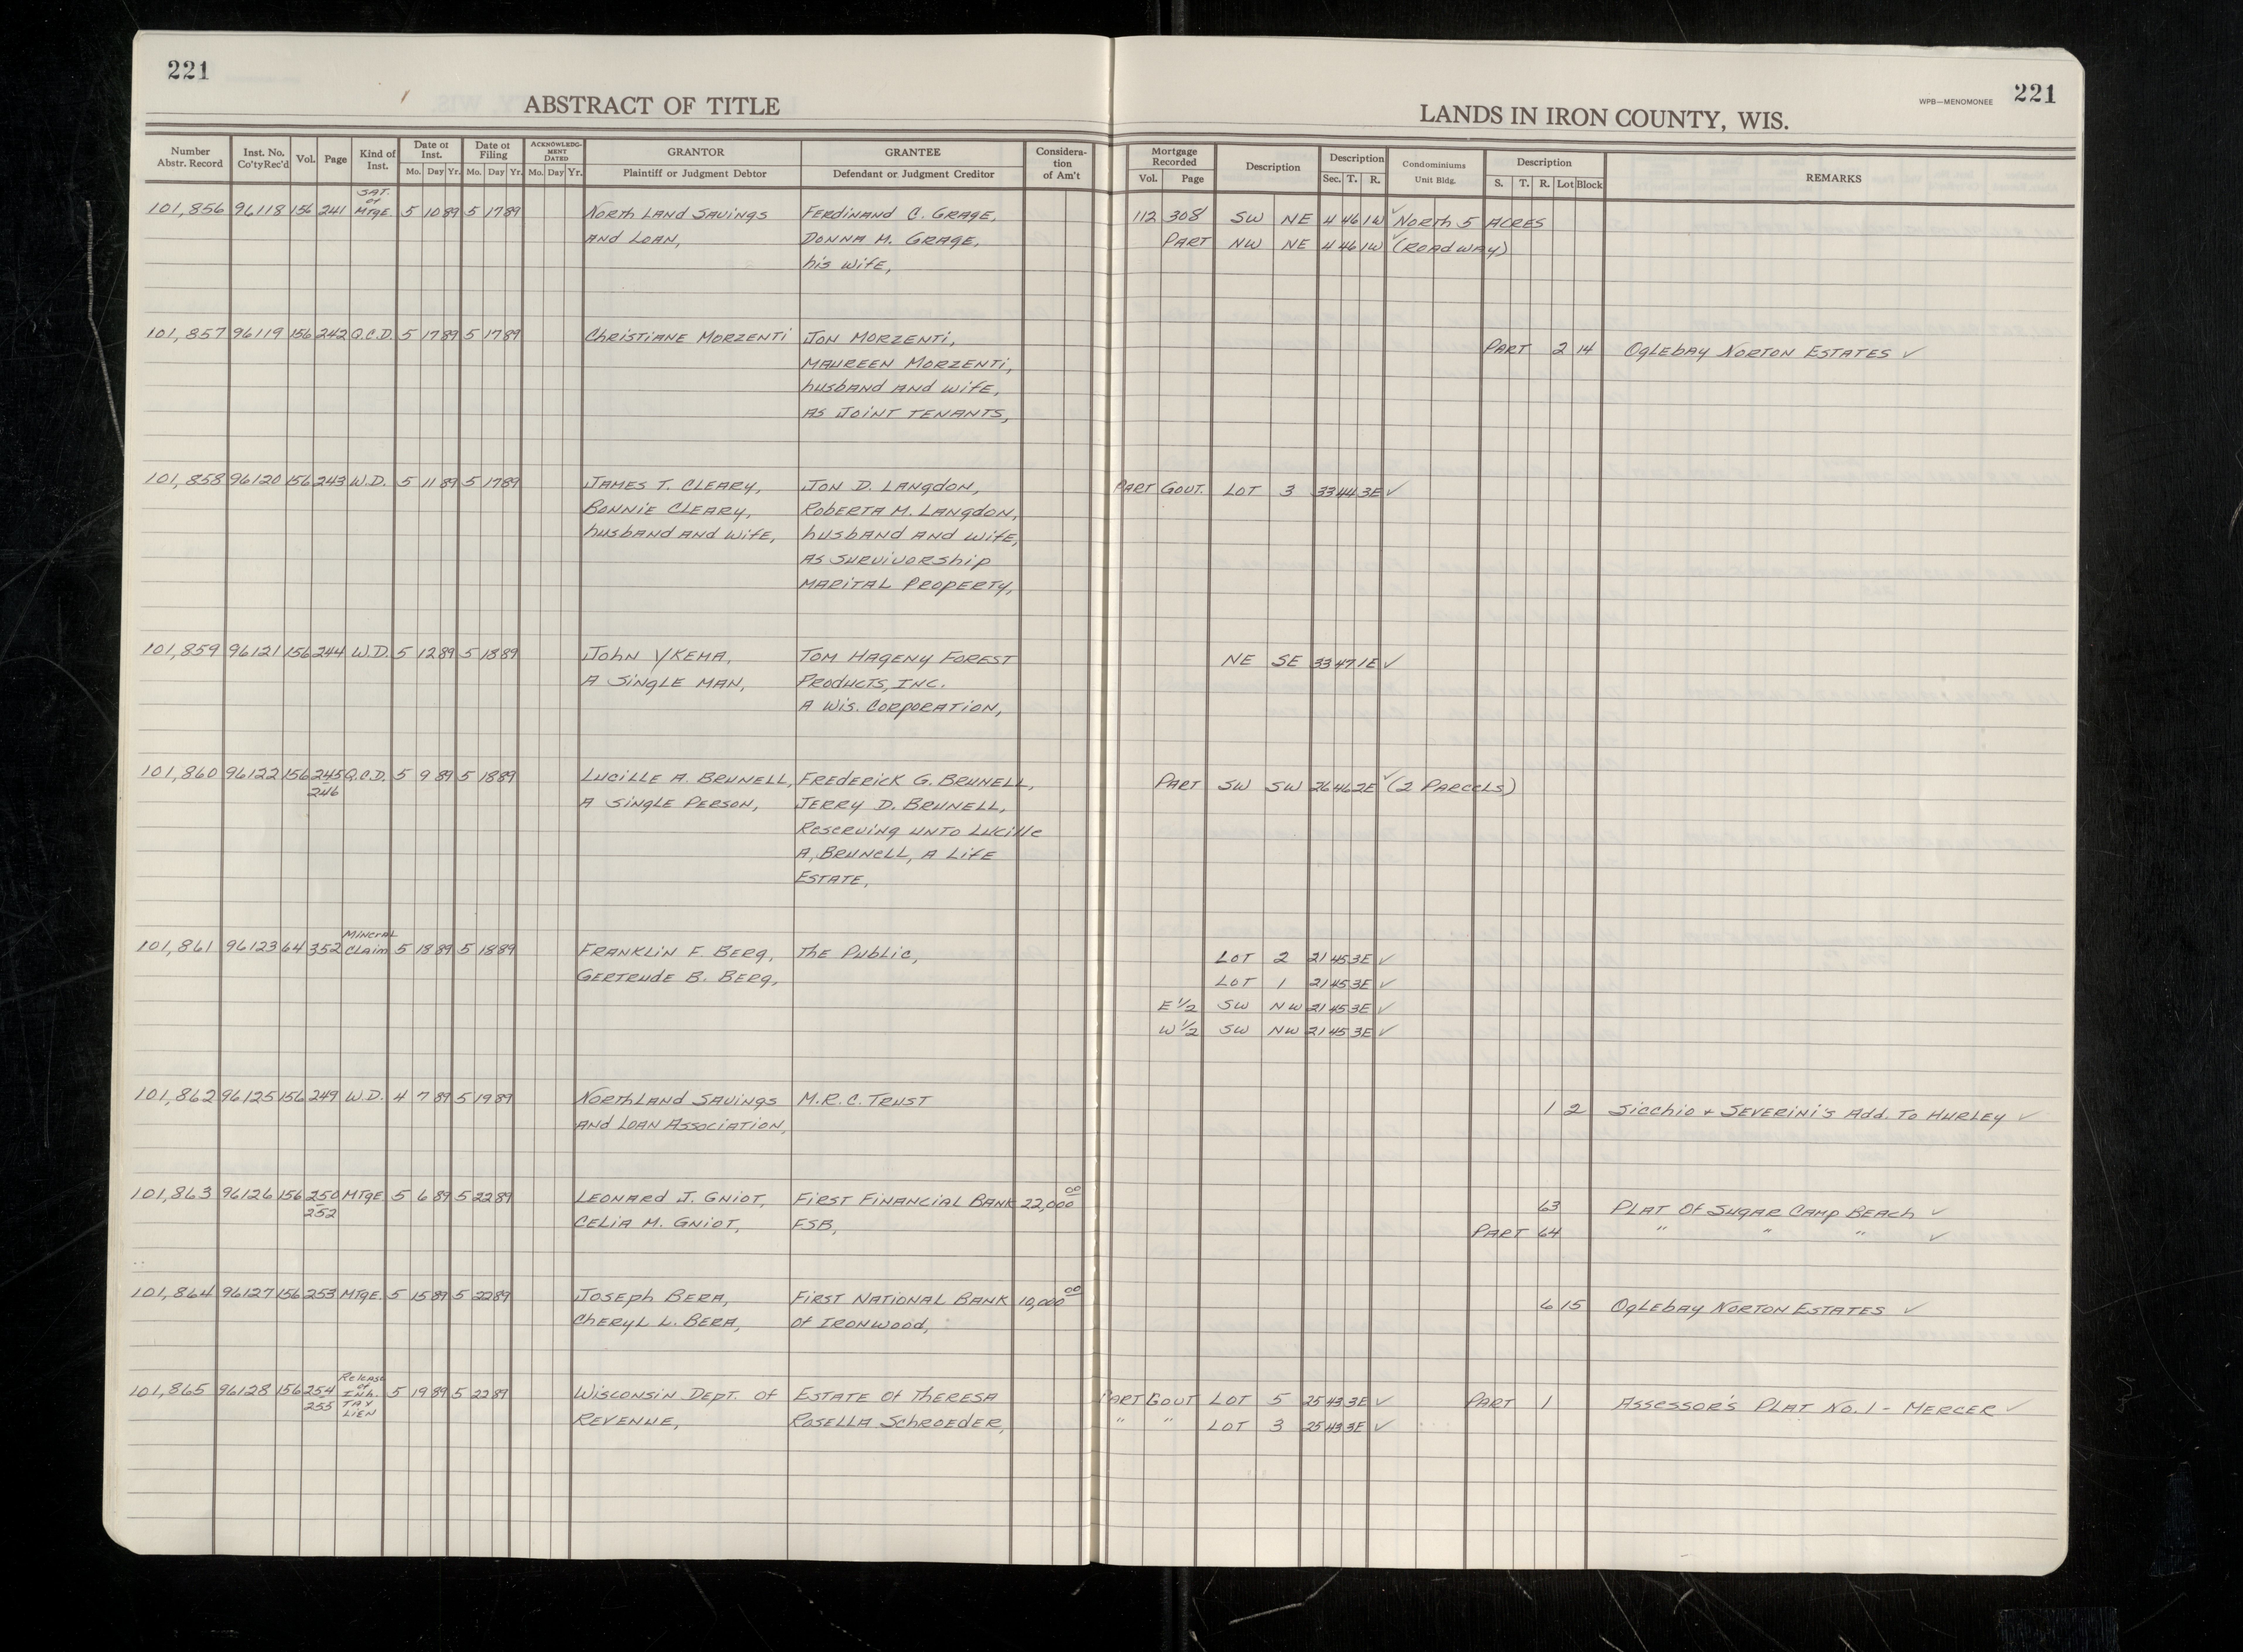 221
ABSTRACT OF TITLE
LANDS IN IRON COUNTY, WIS.
WPB—MENOMONEE 221
Number Abstr. Record | Inst. No. Co'tyRec'd | Vol. | Page | Kind of Inst. | Date of Inst. Mo. Day Yr. | Date of Filing Mo. Day Yr. | ACKNOWLEDGMENT DATED Mo. Day Yr. | GRANTOR Plaintiff or Judgment Debtor | GRANTEE Defendant or Judgment Creditor | Consideration of Am't | Mortgage Recorded Vol. Page | Description | Description Sec. T. R. | Condominiums Unit Bldg. | Description S. T. R. Lot Block | REMARKS
101,856 96118 156 241 SAT. of MTGE. 5 10 89 5 17 89 North Land Savings Ferdinand C. Grage, 112 308 SW NE 4 46 1W ✓ North 5 Acres
and Loan, Donna M. Grage, Part NW NE 4 46 1W ✓ (Roadway)
his wife,
101,857 96119 156 242 Q.C.D. 5 17 89 5 17 89 Christiane Morzenti Jon Morzenti, Part 2 14 Oglebay Norton Estates ✓
Maureen Morzenti,
husband and wife,
as joint tenants,
101,858 96120 156 243 W.D. 5 11 89 5 17 89 James T. Cleary, Jon D. Langdon, Part Govt. Lot 3 33 44 3E ✓
Bonnie Cleary, Roberta M. Langdon,
husband and wife, husband and wife,
as survivorship
marital property,
101,859 96121 156 244 W.D. 5 12 89 5 18 89 John Ykema, Tom Hageny Forest NE SE 33 47 1E ✓
a single man, Products, Inc.
a Wis. Corporation,
101,860 96122 156 245 Q.C.D. 5 9 89 5 18 89 Lucille A. Brunell, Frederick G. Brunell, Part SW SW 26 46 2E ✓ (2 Parcels)
246 a single person, Jerry D. Brunell,
Reserving unto Lucille
A. Brunell, a life
estate,
101,861 96123 64 352 Mineral Claim 5 18 89 5 18 89 Franklin F. Berg, The Public, Lot 2 21 45 3E ✓
Gertrude B. Berg, Lot 1 21 45 3E ✓
E 1/2 SW NW 21 45 3E ✓
W 1/2 SW NW 21 45 3E ✓
101,862 96125 156 249 W.D. 4 7 89 5 19 89 Northland Savings M.R.C. Trust 1 2 Sicchio & Severini's Add. To Hurley ✓
and Loan Association,
101,863 96126 156 250 MTGE 5 6 89 5 22 89 Leonard J. Gniot, First Financial Bank 22,000 00 63 Plat of Sugar Camp Beach ✓
252 Celia M. Gniot, FSB, Part 64 " " " ✓
101,864 96127 156 253 MTGE. 5 15 89 5 22 89 Joseph Bera, First National Bank 10,000 00 6 15 Oglebay Norton Estates ✓
Cheryl L. Bera, of Ironwood,
101,865 96128 156 254 Release of Inh. Tax Lien 5 19 89 5 22 89 Wisconsin Dept. of Estate of Theresa Part Govt Lot 5 25 43 3E ✓ Part 1 Assessor's Plat No. 1 - Mercer ✓
255 Revenue, Rosella Schroeder, " " Lot 3 25 43 3E ✓